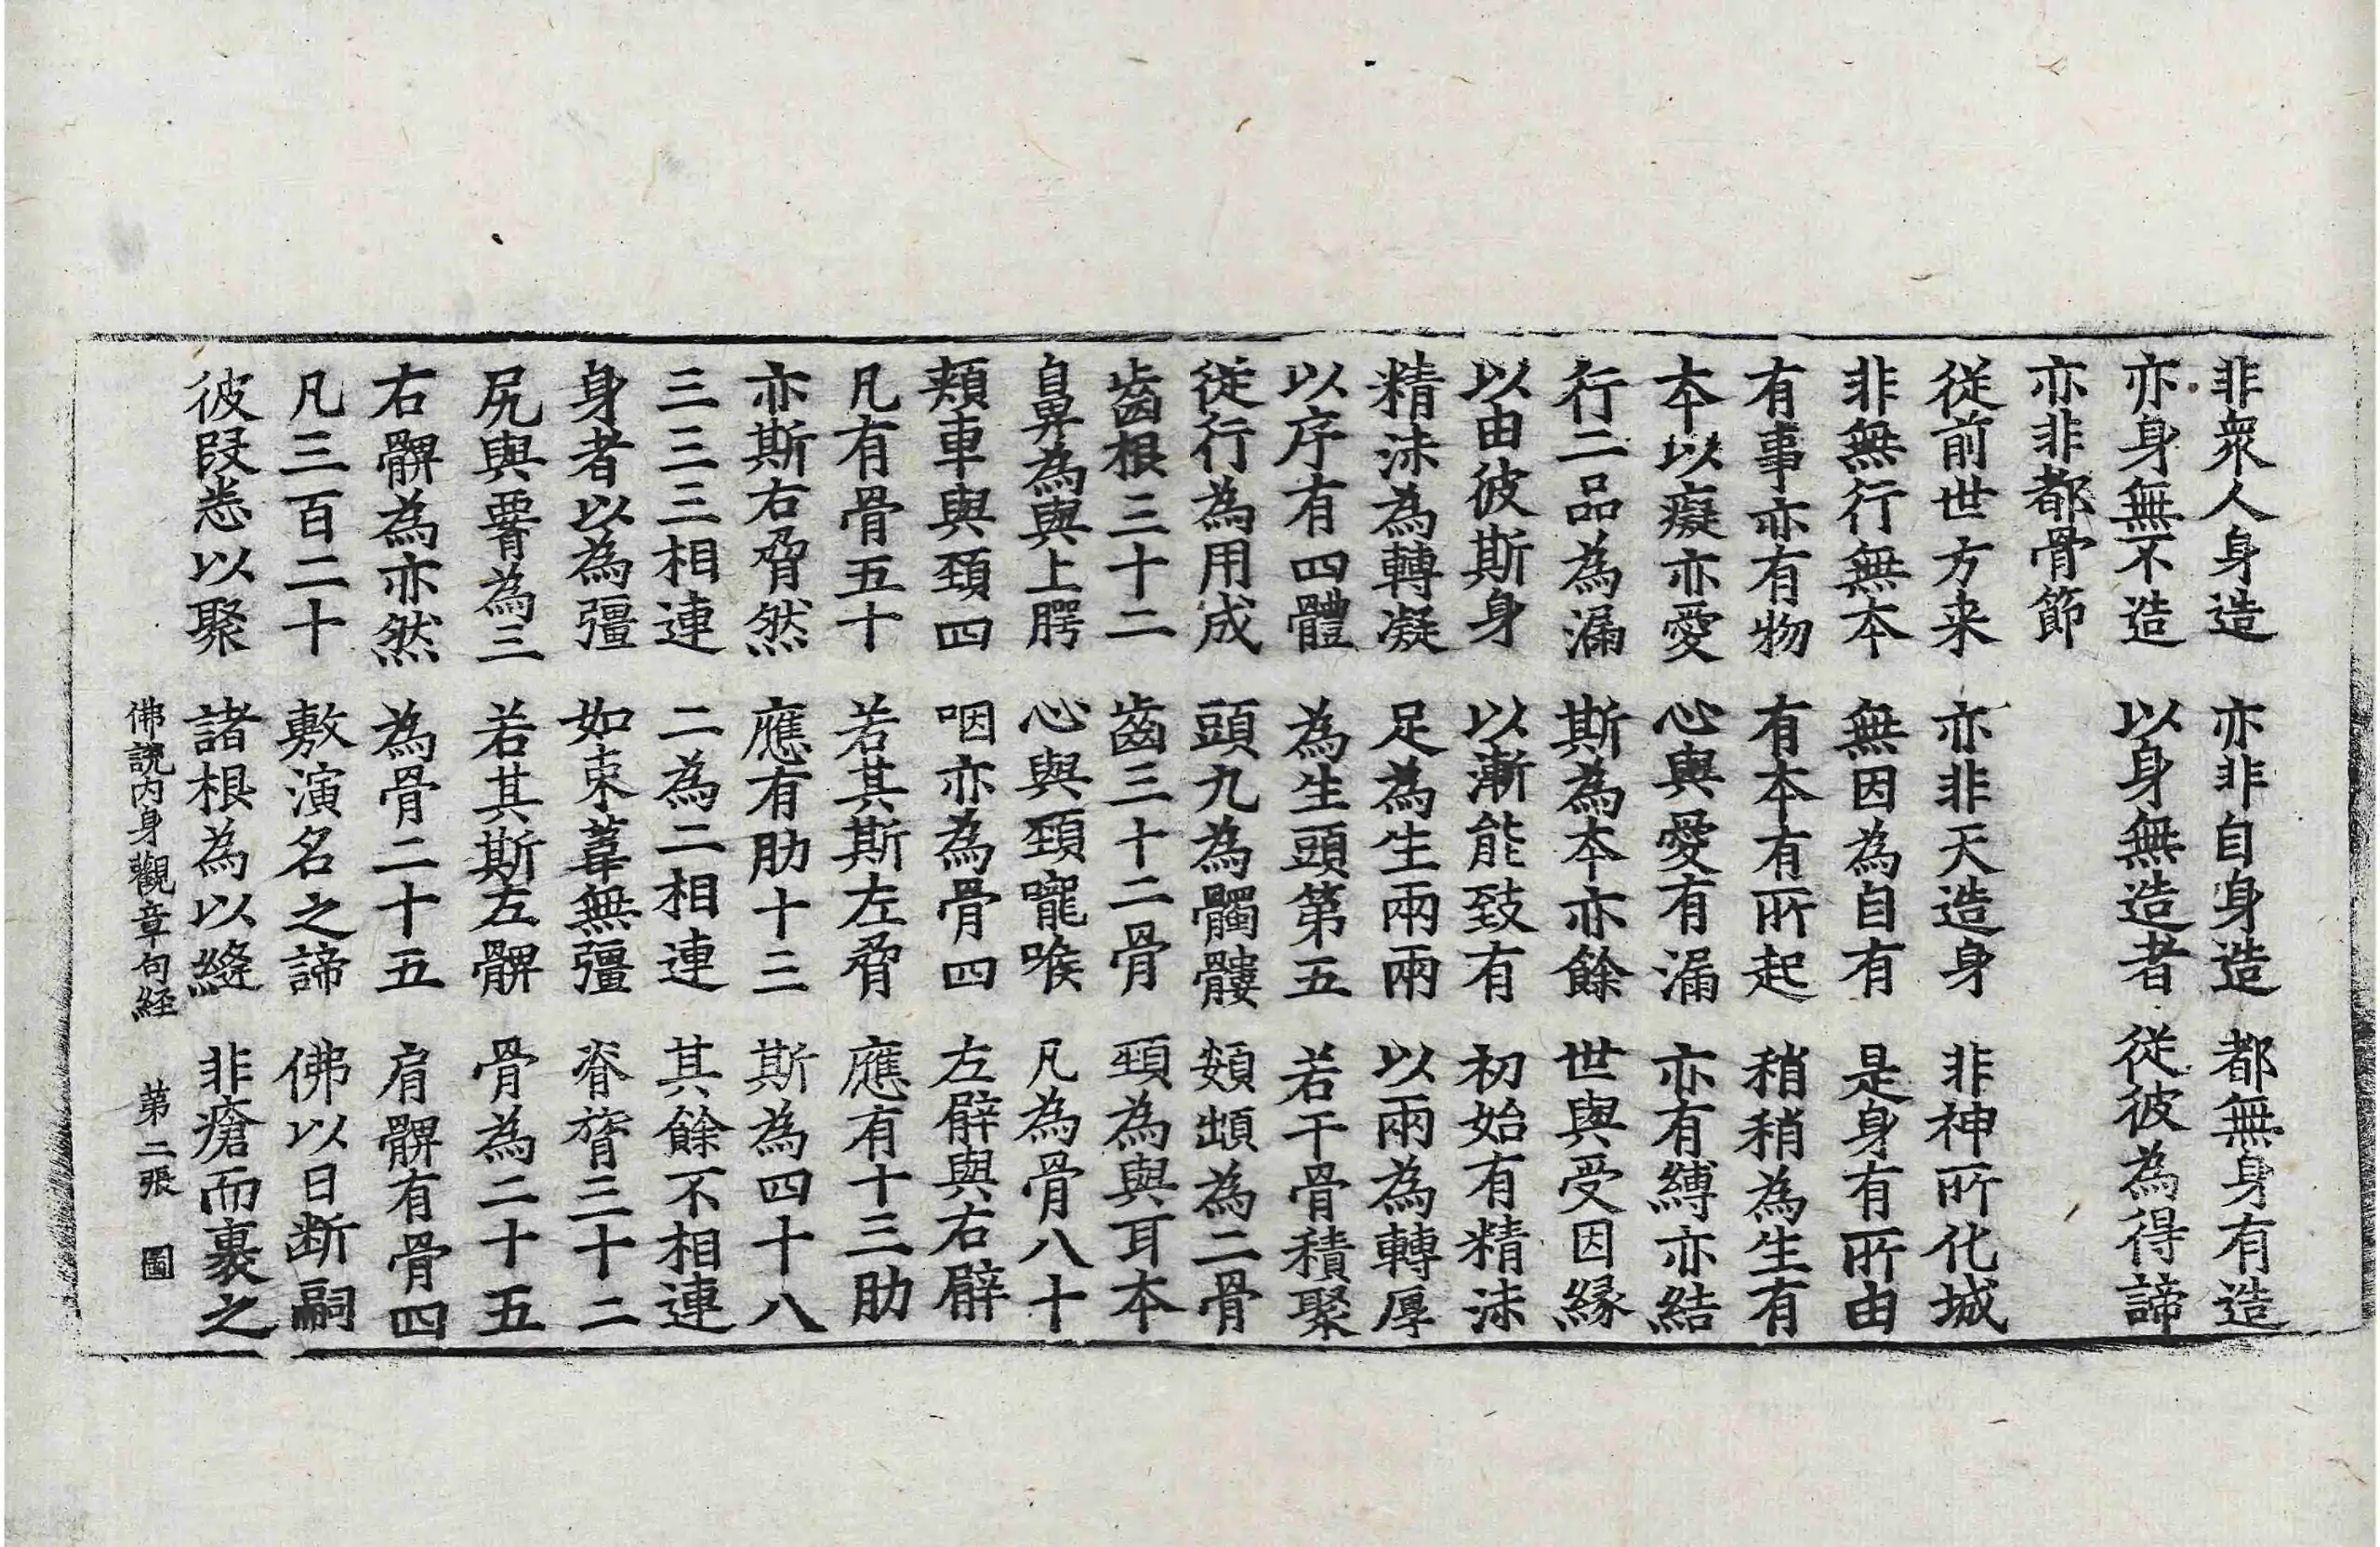 非衆人身造 亦非自身造 都無身有造
亦身無不造 以身無造者 從彼為得諦
亦非都骨節
從前世方来 亦非天造身 非神所化城
非無行無本 無因為自有 是身有所由
有事亦有物 有本有所起 稍稍為生有
本以癡亦愛 心與愛有漏 亦有縛亦結
行二品為漏 斯為本亦餘 世與受因緣
以由彼斯身 以漸能致有 初始有精沫
精沫為轉凝 足為生兩兩 以兩為轉厚
以序有四體 為生頭第五 若干骨積聚
從行為用成 頭九為髑髏 頰䪼為二骨
齒根三十二 齒三十二骨 頸為與耳本
鼻為與上腭 心與頸嚨喉 凡為骨八十
頰車與頸四 咽亦為骨四 左臂與右臂
凡有骨五十 若其斯左脅 應有十三肋
亦斯右脅然 應有肋十三 斯為四十八
三三三相連 二為二相連 其餘不相連
身者以為彊 如束葦無彊 脊膂三十二
尻與臋為三 若其斯左髀 骨為二十五
右髀為亦然 為骨二十五 肩髀有骨四
凡三百二十 敷演名之諦 佛以日断嗣
彼段悉以聚 諸根為以縫 非瘡而裹之
佛説内身觀章句経 第二張 圖